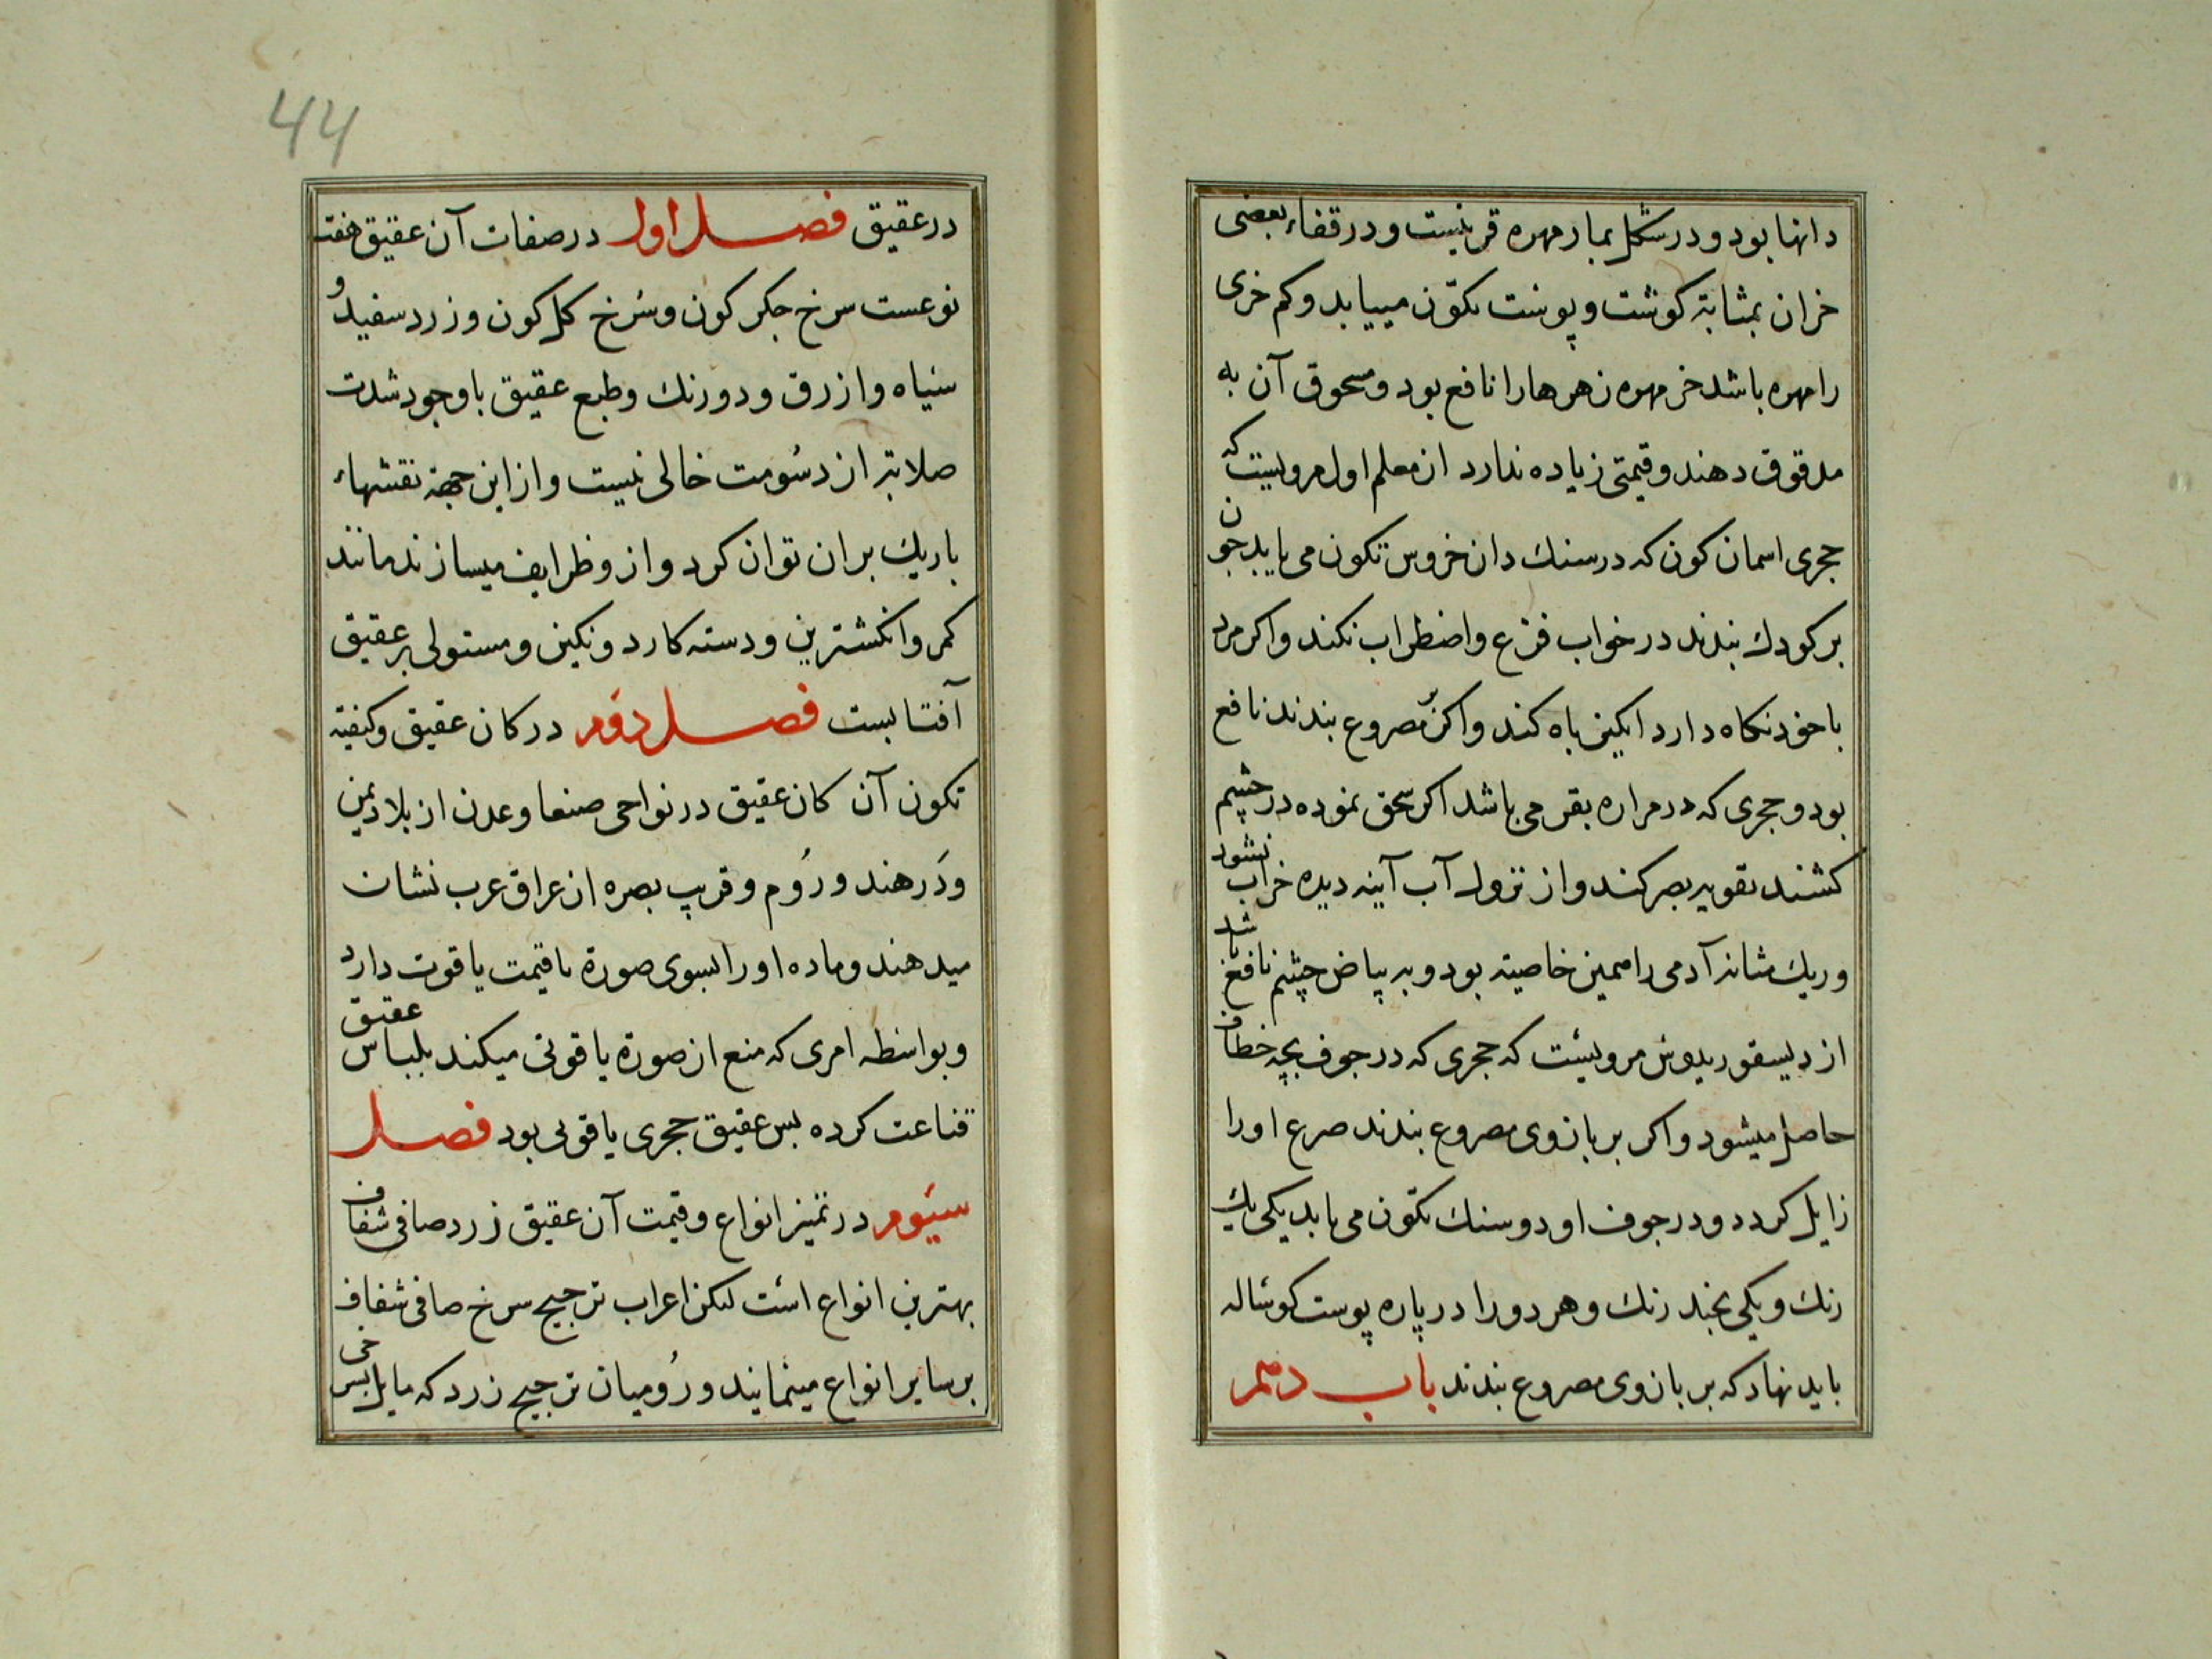 دانها بود و در شکل بمار مهره قرنیست و در قفاء بعضی
خران بمثابهٔ کوشت و پوست تکوّن مییابد و کم خری
را مهره باشد خر مهره زهرها را نافع بود و مسحوق آن به
مدقوق دهند و قیمتی زیاده ندارد از معلم اول مرویست که
حجری اسمان کون که در سنك دان خروس تکون می یابد چون
بر کودك بندند در خواب فزع و اضطراب نکند و اکر مرد
با خود نکاه دارد انکیز باه کند و اکر بر مصروع بندند نافع
بود و حجری که در مراره بقر می باشد اکر سحق نموده در چشم
کشند تقویه بصر کند و از نزول آب آینه دیده خراب نشود
و ریك مثانه آدمی را همین خاصیته بود و به بیاض چشم نافع باشد
از دیسقوریدوس مرویست که حجری که در جوف بچه خطاف
حاصل میشود و اکر بر بازوی مصروع بندند صرع او را
زایل کردد و در جوف او دو سنك تکوّن می یابد یکی یك
رنك و یکی بچند رنك و هر دو را در پاره پوست کوساله
باید نهاد که بر بازوی مصروع بندند باب دهم
44
در عقیق فصل اول در صفات آن عقیق هفت
نوعست سرخ جکر کون و سُرخ کل کون و زرد سفید و
سیاه و ازرق و دو رنك و طبع عقیق با وجود شدت
صلابته از دسُومت خالی نیست و از این جهة نقشهاء
باریك بر ان توان کرد و از و ظرایف میسازند مانند
کمر و انکشترین و دسته کارد و نکین و مستولی بر عقیق
آفتابست فصل دوّم در کان عقیق و کیفیته
تکون آن کان عقیق در نواحی صنعا و عدن از بلاد یمن
و دَر هند و رُوم و قریب بصره از عراق عرب نشان
میدهند و ماده او را بسوی صورة با قیمت یاقوت دارد
و بواسطه امری که منع از صورة یاقوتی میکند بلباس عقیق
قناعت کرده بس عقیق حجری یاقوتی بود فصل
سیّوم در تمیز انواع و قیمت آن عقیق زرد صافی شفاف
بهترین انواع است لیکن اعراب ترجیح سرخ صافی شفاف
بر سایر انواع مینمایند و رُومیان ترجیح زرد که مایل بسرخی